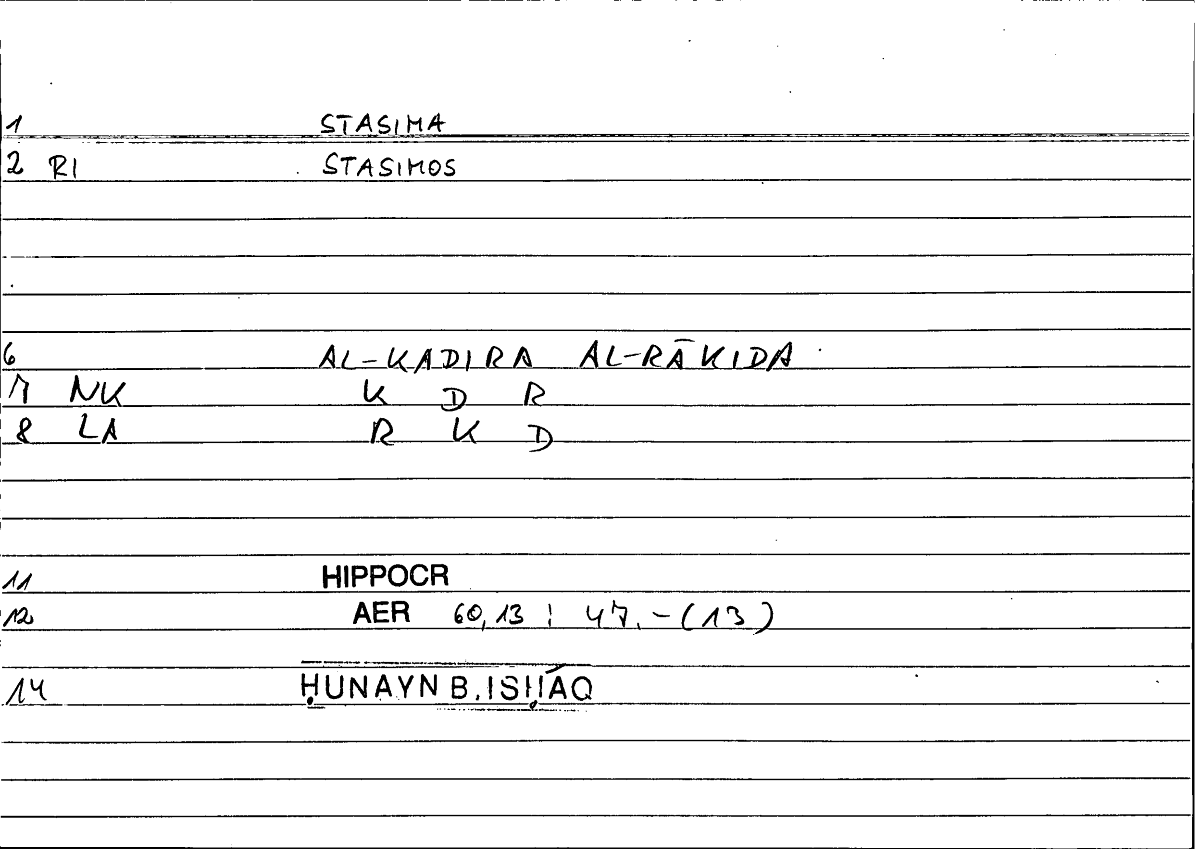 1 STASIMA
2 RI STASIMOS
6 AL-KADIRA AL-RĀKIDA
7 NK K D R
8 LA R K D
11 HIPPOCR
12 AER 60,13 ; 47.-(13)
14 ḤUNAYN B. ISḤĀQ